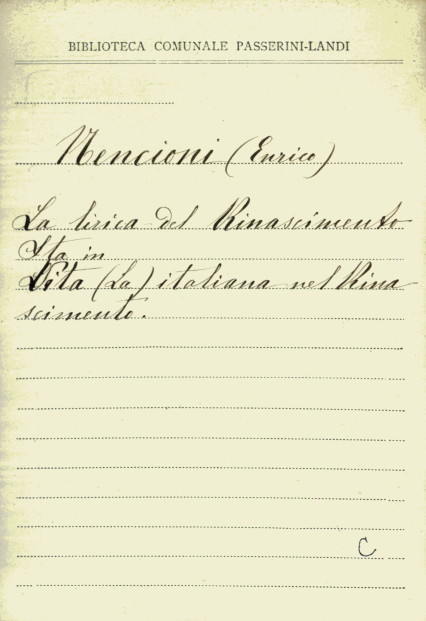 BIBLIOTECA COMUNALE PASSERINI-LANDI
Nencioni (Enrico)
La lirica del Rinascimento
Sta in
Vita (La) italiana nel Rina
scimento.
C